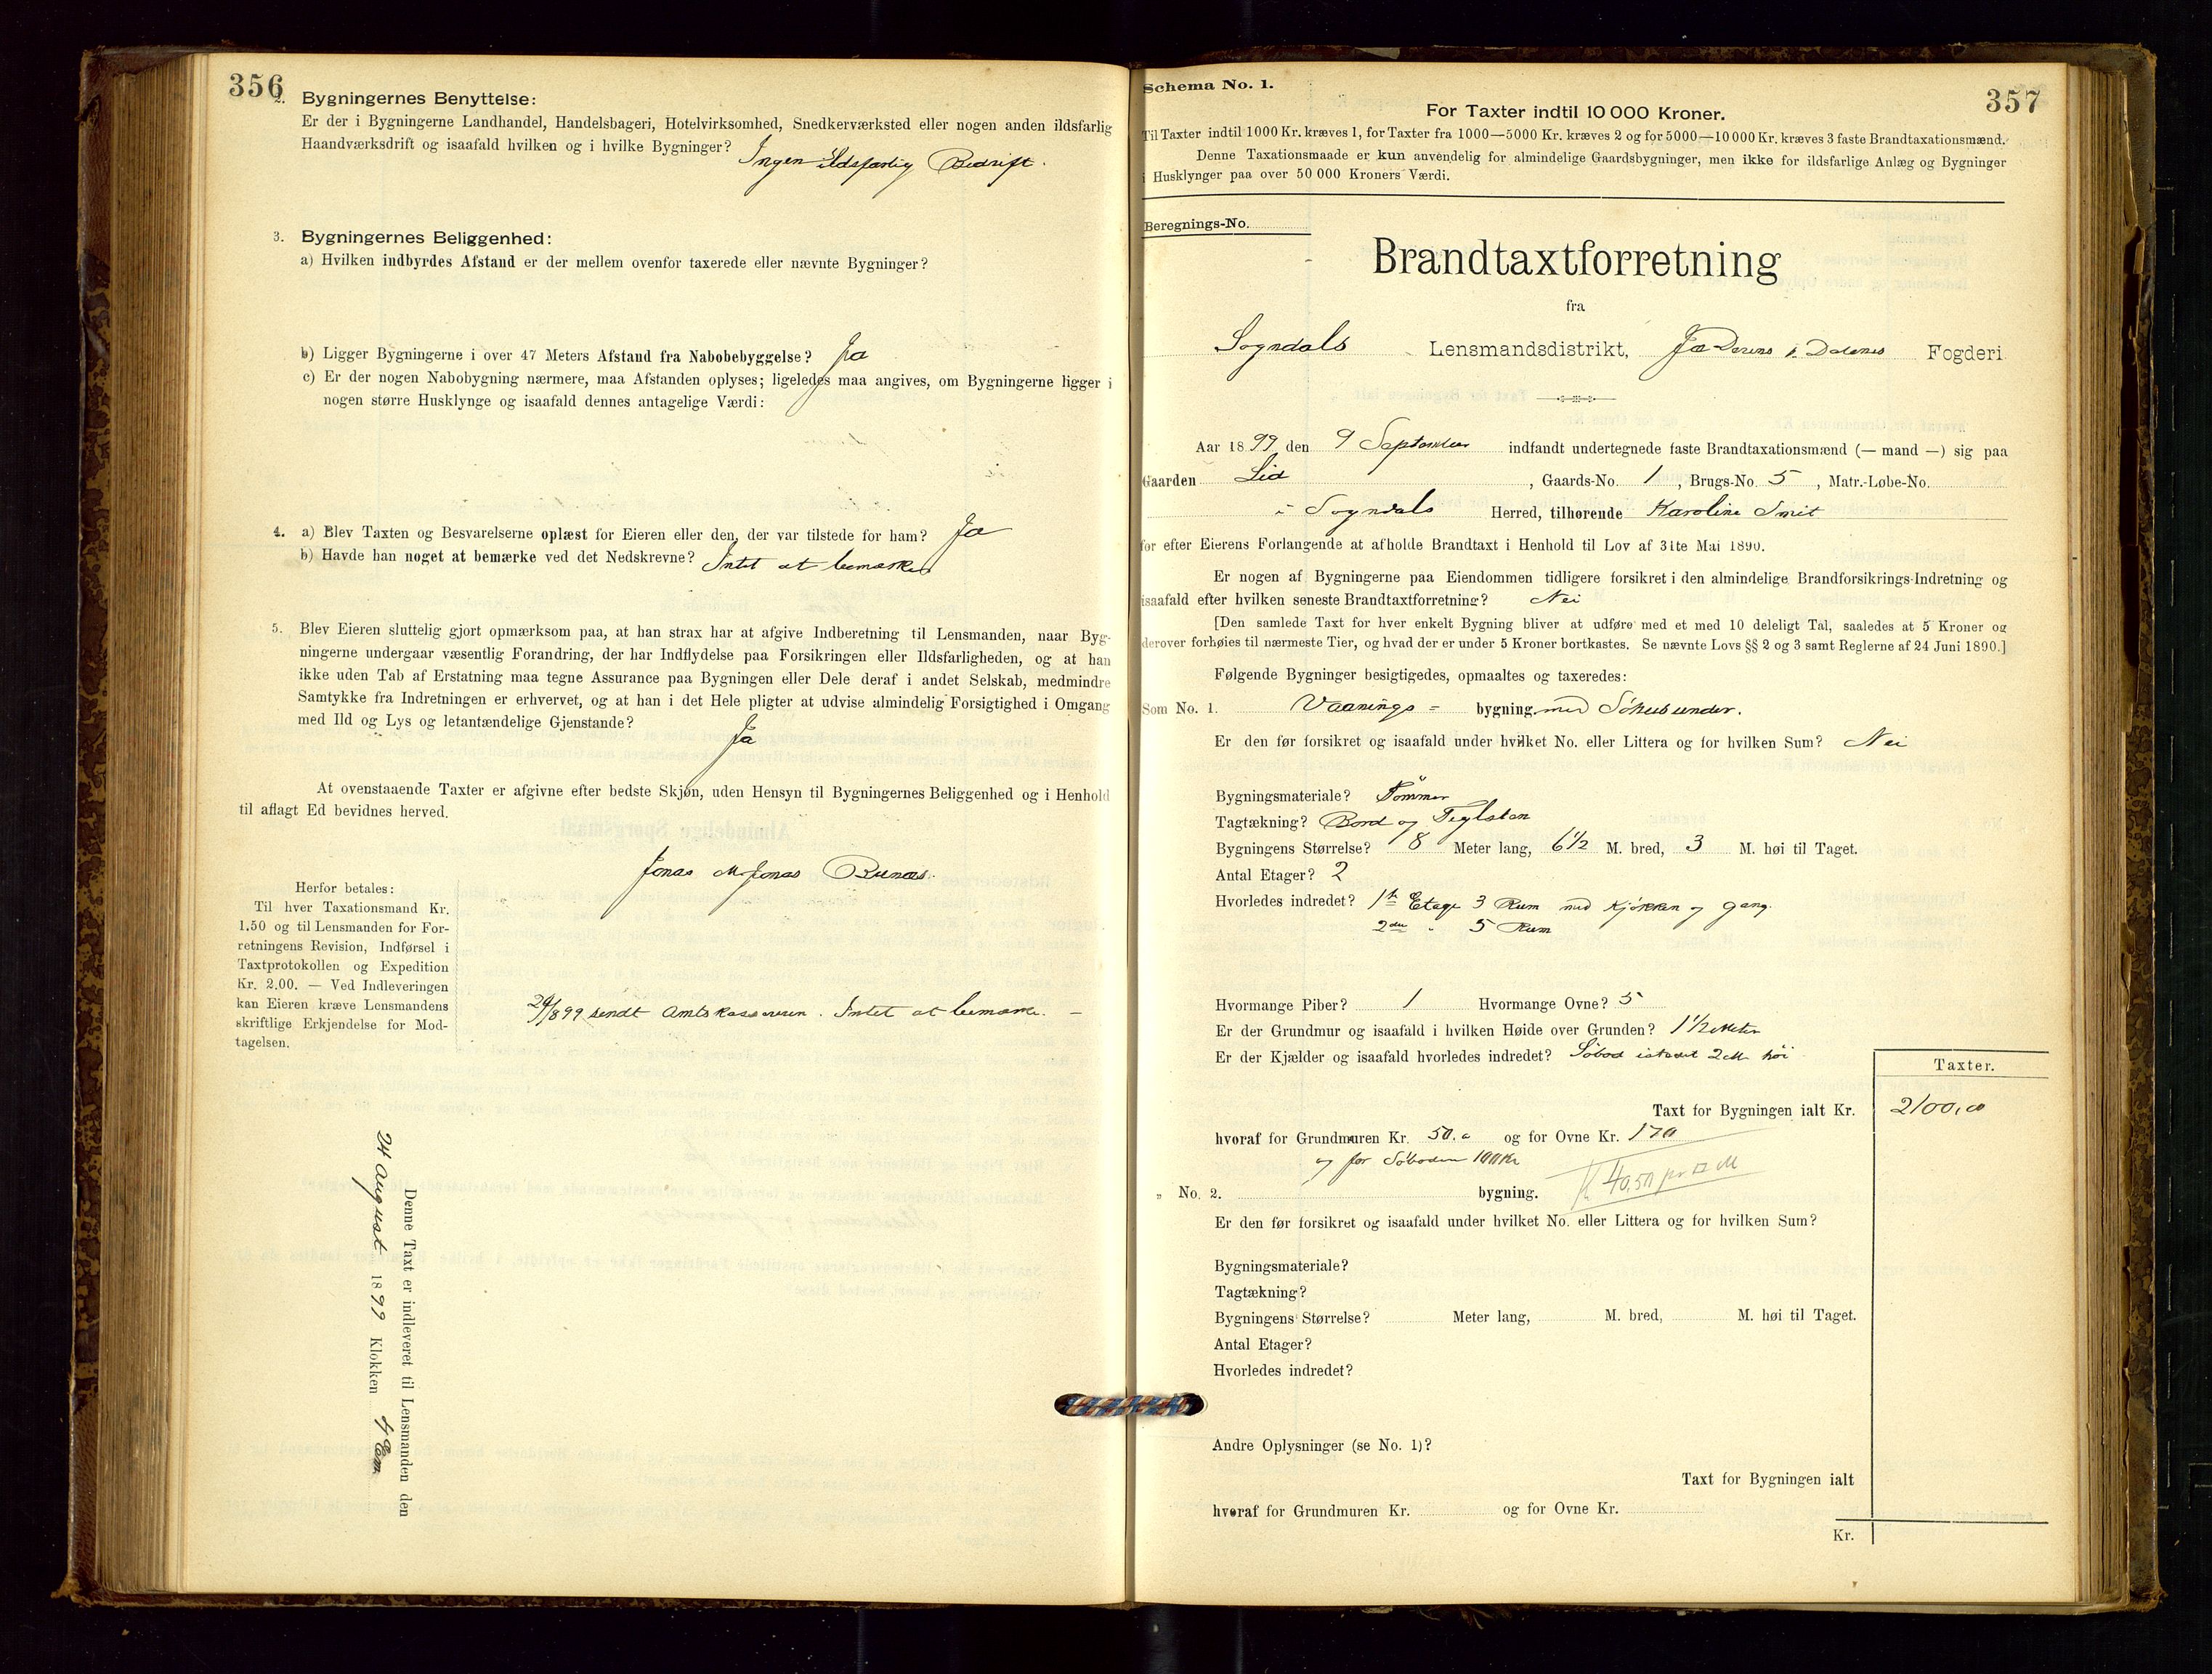 356
2. Bygningernes Benyttelse:
Er der i Bygningerne Landhandel, Handelsbageri, Hotelvirksomhed, Snedkerværksted eller nogen anden ildsfarlig
Haandværksdrift og isaafald hvilken og i hvilke Bygninger? Ingen ildsfarlig Bedrift.
3. Bygningernes Beliggenhed:
a) Hvilken indbyrdes Afstand er der mellem ovenfor taxerede eller nævnte Bygninger?
b) Ligger Bygningerne i over 47 Meters Afstand fra Nabobebyggelse? Ja
c) Er der nogen Nabobygning nærmere, maa Afstanden oplyses; ligeledes maa angives, om Bygningerne ligger i
nogen større Husklynge og isaafald dennes antagelige Værdi:
4. a) Blev Taxten og Besvarelserne oplæst for Eieren eller den, der var tilstede for ham? Ja
b) Havde han noget at bemærke ved det Nedskrevne? Intet at bemærke
5. Blev Eieren sluttelig gjort opmærksom paa, at han strax har at afgive Indberetning til Lensmanden, naar Byg-
ningerne undergaar væsentlig Forandring, der har Indflydelse paa Forsikringen eller Ildsfarligheden, og at han
ikke uden Tab af Erstatning maa tegne Assurance paa Bygningen eller Dele deraf i andet Selskab, medmindre
Samtykke fra Indretningen er erhvervet, og at han i det Hele pligter at udvise almindelig Forsigtighed i Omgang
med Ild og Lys og letantændelige Gjenstande? Ja
At ovenstaaende Taxter er afgivne efter bedste Skjøn, uden Hensyn til Bygningernes Beliggenhed og i Henhold
til aflagt Ed bevidnes herved.
Jonas M Jonas
Herfor betales:
Til hver Taxationsmand Kr.
1.50 og til Lensmanden for For-
retningens Revision, Indførsel i
Taxtprotokollen og Expedition
Kr. 2.00. — Ved Indleveringen
kan Eieren kræve Lensmandens
skriftlige Erkjendelse for Mod-
tagelsen.
sendt Amtskassereren. Intet at bemærke. —
Denne Taxt er indleveret til Lensmanden den
24 August 1899 Klokken 4 Em
357
Schema No. 1.
For Taxter indtil 10 000 Kroner.
Til Taxter indtil 1000 Kr. kræves 1, for Taxter fra 1000—5000 Kr. kræves 2 og for 5000—10 000 Kr. kræves 3 faste Brandtaxationsmænd.
Denne Taxationsmaade er kun anvendelig for almindelige Gaardsbygninger, men ikke for ildsfarlige Anlæg og Bygninger
i Husklynger paa over 50 000 Kroners Værdi.
Beregnings-No.
Brandtaxtforretning
fra
Sogndals Lensmandsdistrikt, Jæderens & Dalenes Fogderi
Aar 1899 den 9 September indfandt undertegnede faste Brandtaxationsmænd (— mand —) sig paa
Gaarden Lid, Gaards-No. 1, Brugs-No. 5, Matr.-Løbe-No.
i Sogndals Herred, tilhørende Karoline Smit
for efter Eierens Forlangende at afholde Brandtaxt i Henhold til Lov af 31te Mai 1890.
Er nogen af Bygningerne paa Eiendommen tidligere forsikret i den almindelige Brandforsikrings-Indretning og
isaafald efter hvilken seneste Brandtaxtforretning? Nei
[Den samlede Taxt for hver enkelt Bygning bliver at udføre med et med 10 deleligt Tal, saaledes at 5 Kroner og
derover forhøies til nærmeste Tier, og hvad der er under 5 Kroner bortkastes. Se nævnte Lovs §§ 2 og 3 samt Reglerne af 24 Juni 1890.]
Følgende Bygninger besigtigedes, opmaaltes og taxeredes:
Som No. 1. Vaanings- bygning med under.
Er den før forsikret og isaafald under hvilket No. eller Littera og for hvilken Sum? Nei
Bygningsmateriale? Tømmer
Tagtækning? Bord og Teglsten
Bygningens Størrelse? 8 Meter lang, 6 1/2 M. bred, 3 M. høi til Taget.
Antal Etager? 2
Hvorledes indredet? 1ste Etage 3 Rum med Kjøkken og gang.
2den " 5 Rum
Hvormange Piber? 1 Hvormange Ovne? 5
Er der Grundmur og isaafald i hvilken Høide over Grunden? 1 1/2 Meter
Er der Kjælder og isaafald hvorledes indredet? Søbod 2 M høi
Taxter.
Taxt for Bygningen ialt Kr. 2100,00
hvoraf for Grundmuren Kr. 50.0 og for Ovne Kr. 170
og for Søboden 100 Kr
K 40,50 pr □ M
" No. 2. bygning.
Er den før forsikret og isaafald under hvilket No. eller Littera og for hvilken Sum?
Bygningsmateriale?
Tagtækning?
Bygningens Størrelse? Meter lang, M. bred, M. høi til Taget.
Antal Etager?
Hvorledes indredet?
Andre Oplysninger (se No. 1)?
Taxt for Bygningen ialt
hvoraf for Grundmuren Kr. og for Ovne Kr.
Kr.